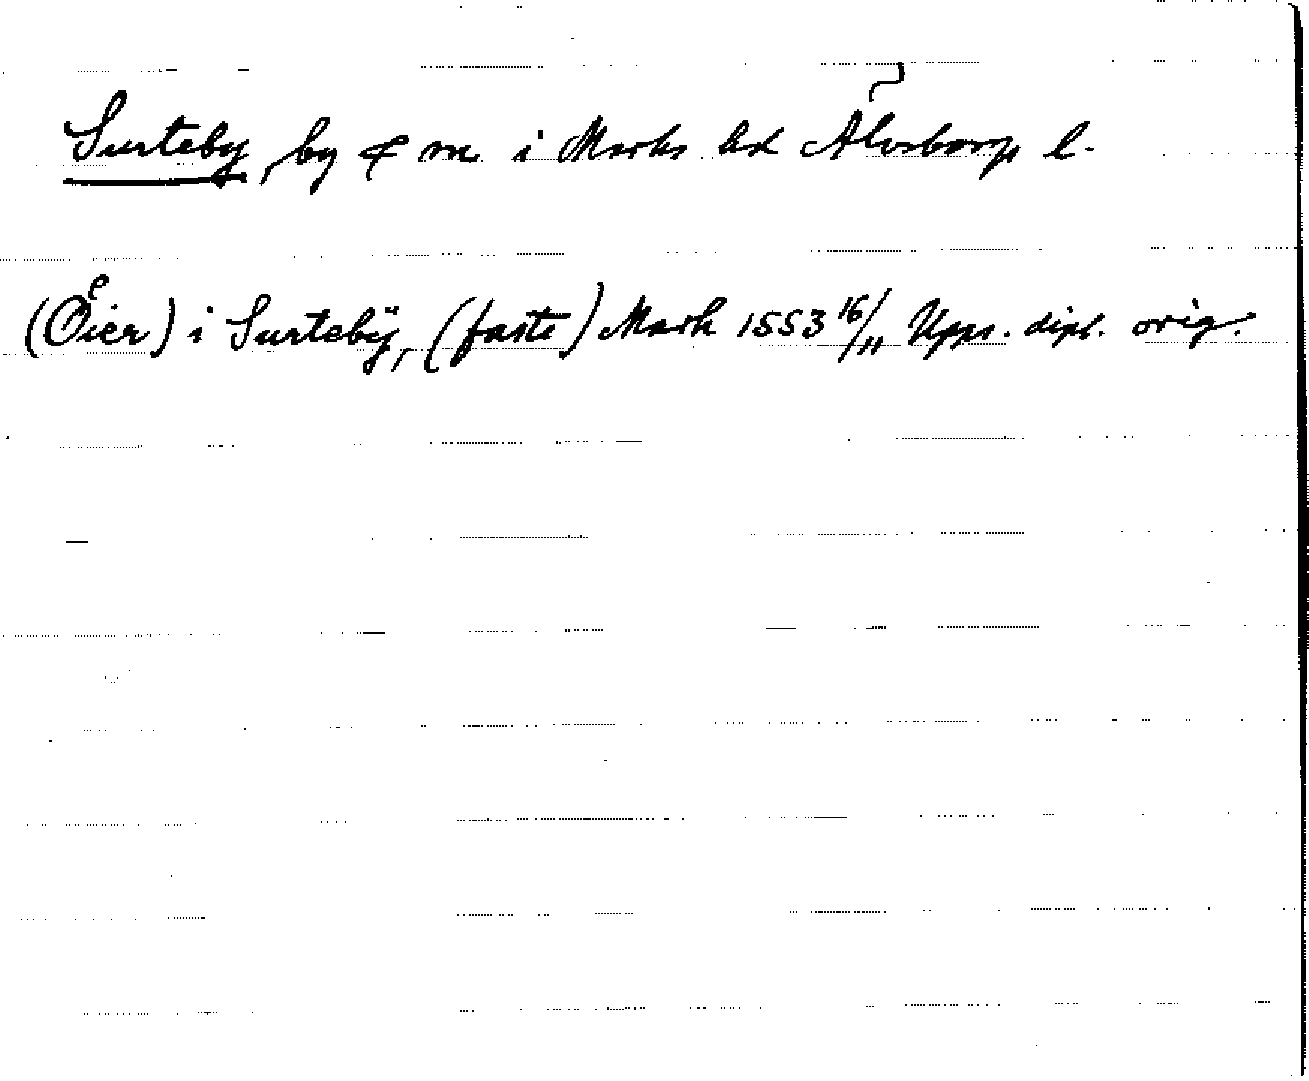 Surteby, by & sn. i Marks hd Älvsborgs l.
(Öier) i Surtebÿ, (faste) Mark 1553 16/11 Upps. dipl. orig.